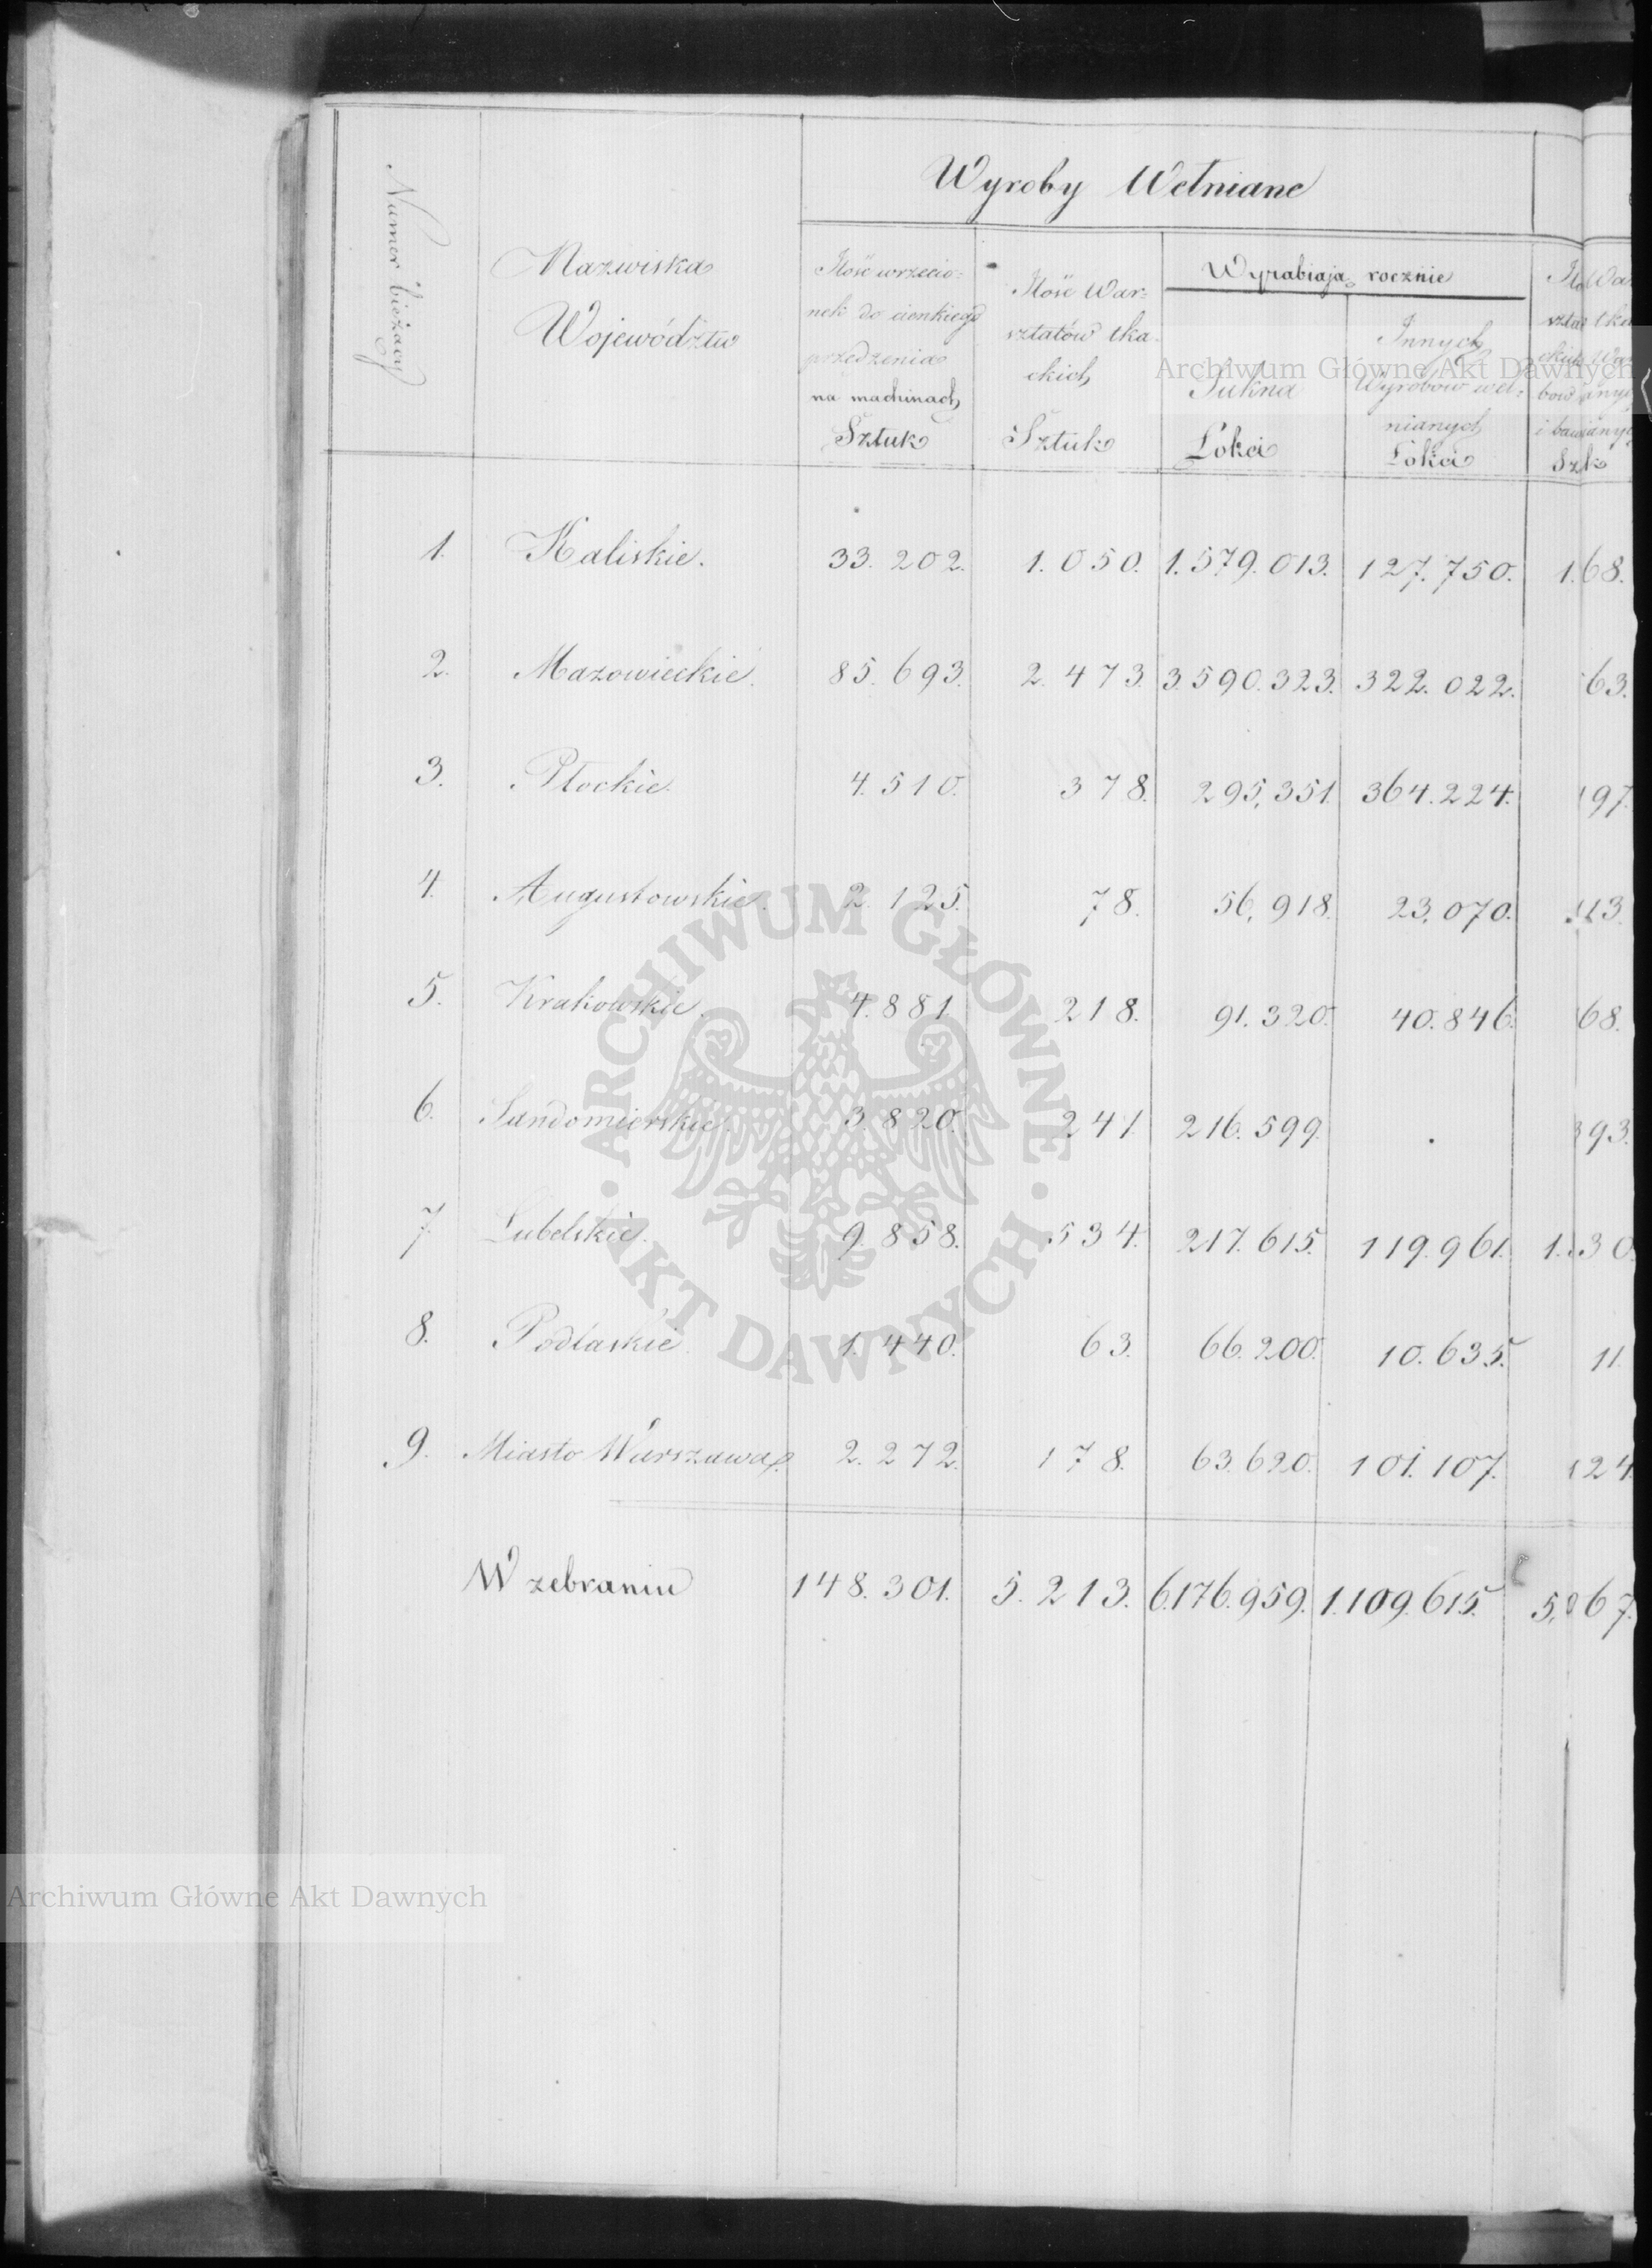 Numer bieżący
Nazwiska
Województw
Wyroby Wełniane
Ilość wrzecio=
nek do cienkiego
przędzenia
na machinach
Sztuk
Ilość War=
sztatów tka
ckich
Sztuk
Wyrabiają rocznie
Sukna
Łokci
Innych
Wyrobów weł=
nianych
Łokci
1. Kaliskie. 33.202. 1.050. 1.579.013. 127.750. 68.
2. Mazowieckie. 85.693. 2.473. 3.590.323. 322.022. 63.
3. Płockie. 4.510. 378. 295,351. 364.224. 97.
4. Augustowskie. 2.125. 78. 56,918. 23,070. 13.
5. Krakowskie. 4.881. 218. 91.320. 40.846. 68.
6. Sandomierskie. 3.820. 241 216.599. . 93.
7. Lubelskie. 9.858. 534. 217.615. 119.961. 30.
8. Podlaskie. 1.440. 63. 66.200. 10.635. 11.
9. Miasto Warszawa. 2.272. 178. 63.620. 101.107. 24.
W zebraniu 148.301. 5.213. 6.176.959. 1.109.615. 67.
Archiwum Główne Akt Dawnych
ARCHIWUM GŁÓWNE
AKT DAWNYCH
Archiwum Główne Akt Dawnych